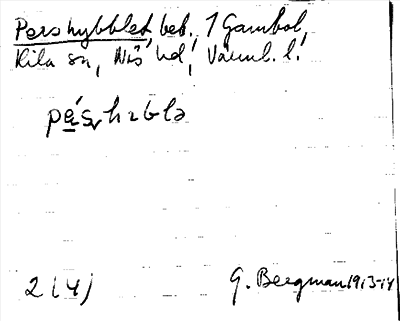 Pershybblet, beb. 1 Gambol,
Kila sn, Näs hd, Värml. l.
pe̲ʹsₒhɪblə
2 (4) G. Bergman 1913-14